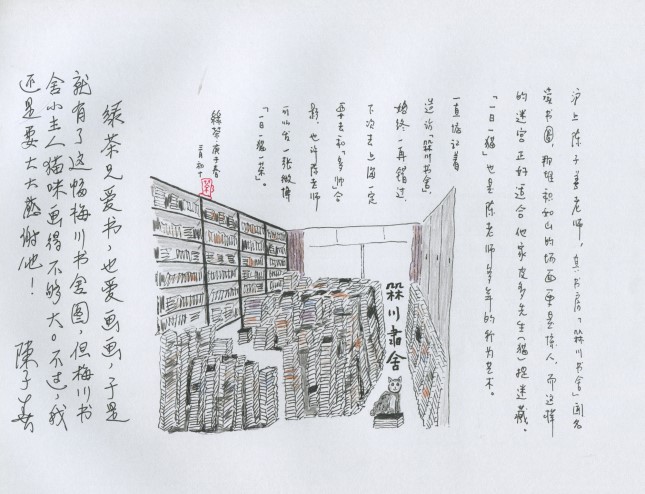 沪上陈子善老师,其书房「槑川书舍」闻名
读书圈,那堆积如山的场面更是惊人,而这样
的迷宫正好适合他家皮多先生(猫)捉迷藏。
「一日一猫」也是陈老师多年的行为艺术。
一直惦记着
造访「槑川书舍」,
始终一再错过,
下次去上海一定
要去和「多帅」合
影,也许陈老师
可以发一张微博
「一日一猫一茶」。
绿茶庚子春
三月初十
槑川書舍
绿茶兄爱书,也爱画画,于是
就有了这幅梅川书舍图,但梅川书
舍小主人猫咪画得不够大。不过,我
还是要大大感谢他!
陳子善